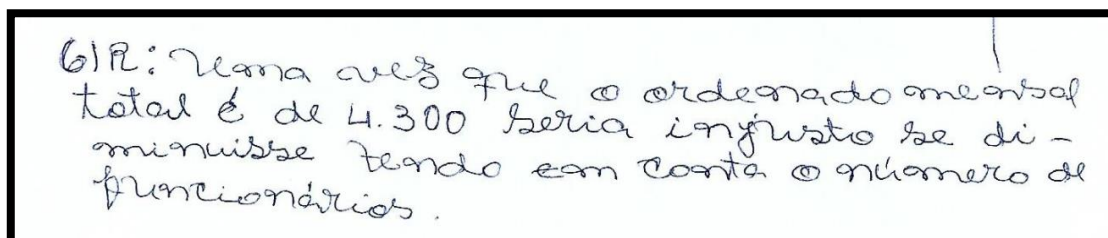 6)R: Uma vez que o ordenado mensal
total é de 4.300 seria injusto se di-
minuisse tendo em conta o número de
funcionários.